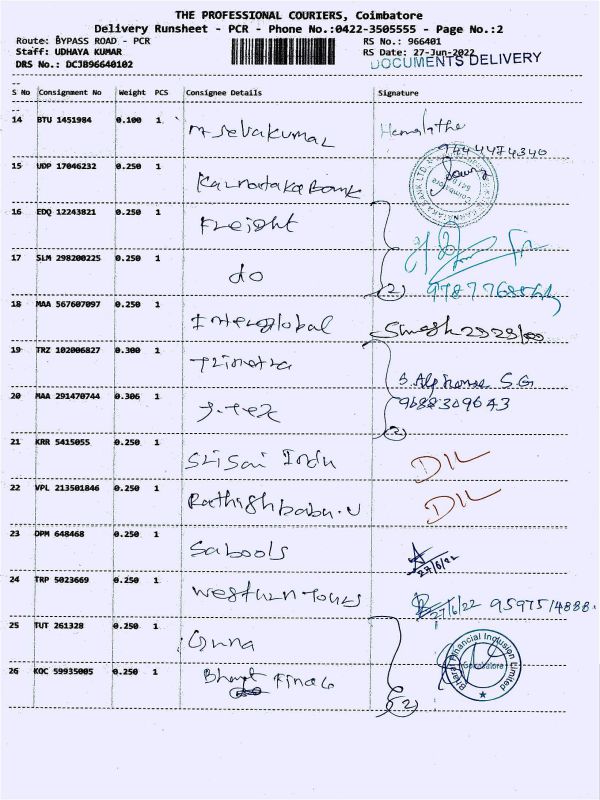 THE PROFESSIONAL COURIERS, Coimbatore
Delivery Runsheet - PCR - Phone No.:0422-3505555 - Page No.:2
Route: BYPASS ROAD - PCR RS No.: 966401
Staff: UDHAYA KUMAR RS Date: 27-Jun-2022
DRS No.: DCJB96640102 DOCUMENTS DELIVERY
S No Consignment No Weight PCS Consignee Details Signature
14 BTU 1451984 0.100 1 Hemalatha
9444474340
15 UDP 17046232 0.250 1 Karnataka Bank
16 EDQ 12243821 0.250 1 Freight
17 SLM 298200225 0.250 1 do (2)
18 MAA 567607097 0.250 1 Interglobal
19 TRZ 102006827 0.300 1
20 MAA 291470744 0.306 1 S.G
9688309643 (2)
21 KRR 5415055 0.250 1 Sri Sai Indu DIL
22 VPL 213501846 0.250 1 Rathish babu.U DIL
23 DPM 648468 0.250 1 Sabools 27/6/22
24 TRP 5023669 0.250 1 Western Tours 27/6/22 9597514888
25 TUT 261328 0.250 1 Guna
26 KOC 59935005 0.250 1 Bharat (2)
Bharat Financial Inclusion Limited
Coimbatore